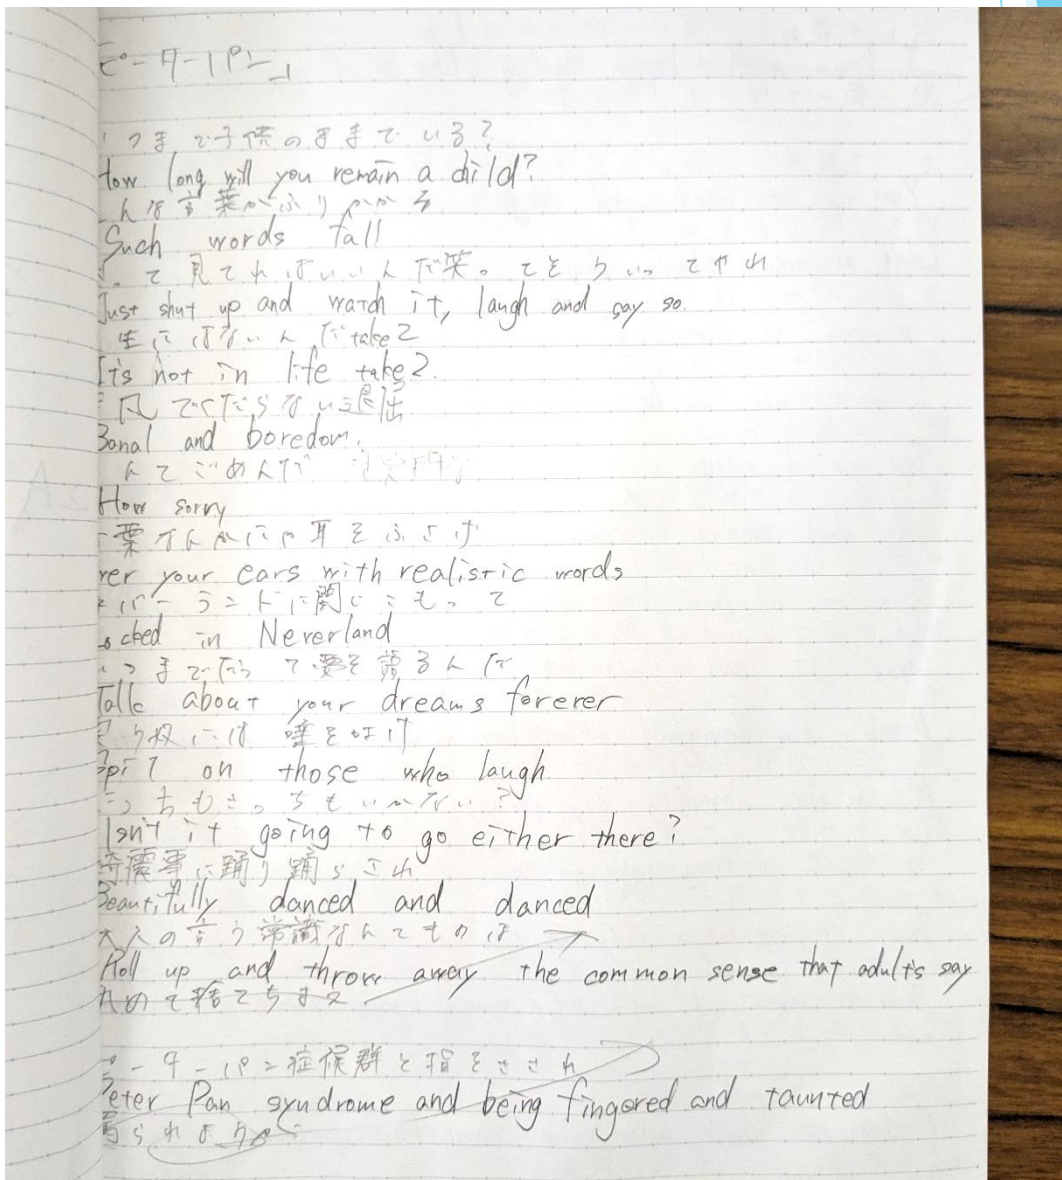 ピーターパン
つまで子供のままでいる?
How long will you remain a child?
んな言葉がふりかかる
Such words fall
って見てればいいんだ笑ってそういってやれ
Just shut up and watch it, laugh and say so.
生にはないんだ take2
It's not in life take2.
凡でくだらない退屈
Banal and boredom.
んてごめんだ
How sorry
葉なんかにゃ耳をふさげ
ver your ears with realistic words
バーランドに閉じこもって
cked in Neverland
つまでだって夢を語るんだ
Talk about your dreams forever
う奴には唾をはけ
Spit on those who laugh
っちもさっちもいかない?
Isn't it going to go either there?
綺麗事に踊り踊らされ
Beautifully danced and danced
大人の言う常識なんてものは
Roll up and throw away the common sense that adult's say
丸めて捨てちまえ
ピーターパン症候群と指をさされ
Peter Pan syndrome and being fingered and taunted
罵られようが